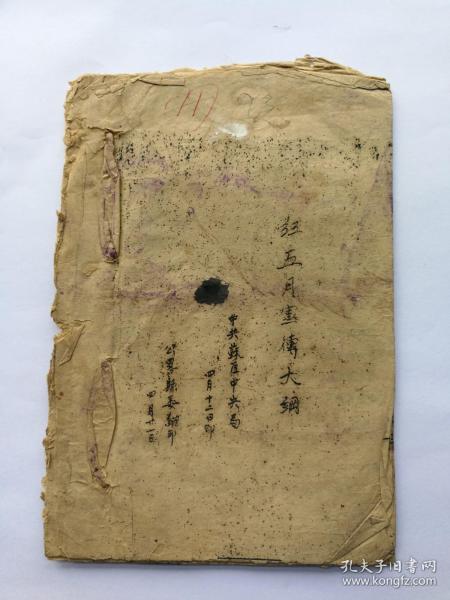 红五月宣传大纲
中共苏区中央局
四月十二日印
公略县委翻印
四月廿一日
孔夫子旧书网
www.kongfz.com